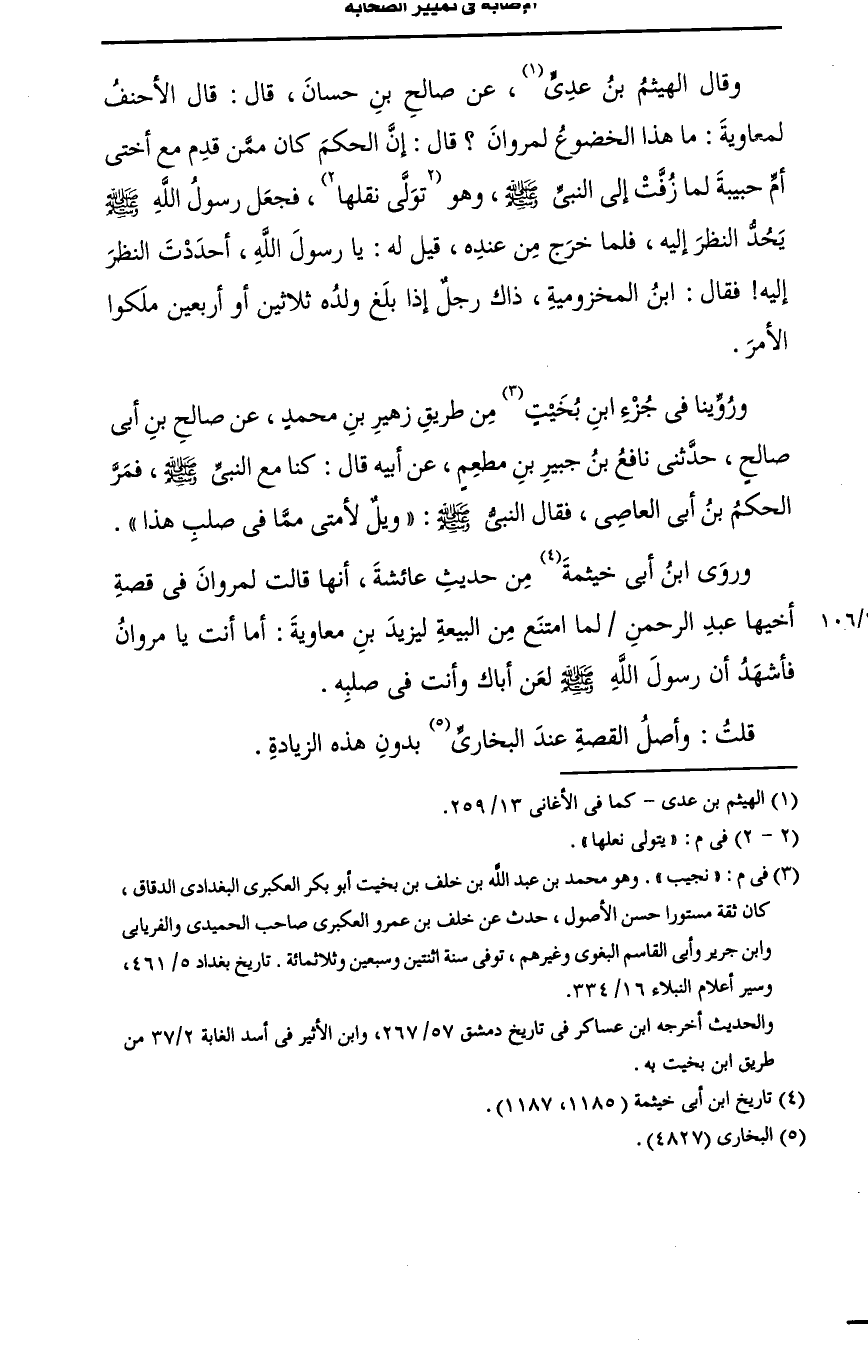 الإصابة فى تمييز الصحابة
وقال الهيثمُ بنُ عدِىٍّ(١) ، عن صالحِ بنِ حسانَ ، قال : قال الأحنفُ
لمعاويةَ : ما هذا الخضوعُ لمروانَ ؟ قال : إنَّ الحكمَ كان ممَّن قدِم مع أختى
أمِّ حبيبةَ لما زُفَّتْ إلى النبىِّ ﷺ ، وهو (٢توَلَّى نقلها٢) ، فجعَل رسولُ اللَّهِ ﷺ
يَحُدُّ النظرَ إليه ، فلما خرَج مِن عندِه ، قيل له : يا رسولَ اللَّهِ ، أحدَدْتَ النظرَ
إليه! فقال : ابنُ المخزوميةِ ، ذاك رجلٌ إذا بلَغ ولدُه ثلاثين أو أربعين ملَكوا
الأمرَ .
ورُوِّينا فى جُزْءِ ابنِ بُخَيْتٍ(٣) مِن طريقِ زهيرِ بنِ محمدٍ ، عن صالحِ بنِ أبى
صالحٍ ، حدَّثنى نافعُ بنُ جبيرِ بنِ مطعِمٍ ، عن أبيه قال : كنا مع النبىِّ ﷺ ، فمَرَّ
الحكمُ بنُ أبى العاصِى ، فقال النبىُّ ﷺ : « ويلٌ لأمتى ممَّا فى صلبِ هذا » .
وروَى ابنُ أبى خيثمةَ(٤) مِن حديثِ عائشةَ ، أنها قالت لمروانَ فى قصةِ
أخيها عبدِ الرحمنِ / لما امتنَع مِن البيعةِ ليزيدَ بنِ معاويةَ : أما أنت يا مروانُ
١٠٦/
فأشهَدُ أن رسولَ اللَّهِ ﷺ لعَن أباك وأنت فى صلبِه .
قلتُ : وأصلُ القصةِ عندَ البخارىِّ(٥) بدونِ هذه الزيادةِ .
(١) الهيثم بن عدى – كما فى الأغانى ١٣/ ٢٥٩.
(٢ – ٢) فى م : « يتولى نعلها » .
(٣) فى م : « نجيب » . وهو محمد بن عبد اللَّه بن خلف بن بخيت أبو بكر العكبرى البغدادى الدقاق ،
كان ثقة مستورا حسن الأصول ، حدث عن خلف بن عمرو العكبرى صاحب الحميدى والفريابى
وابن جرير وأبى القاسم البغوى وغيرهم ، توفى سنة اثنتين وسبعين وثلاثمائة . تاريخ بغداد ٥/ ٤٦١،
وسير أعلام النبلاء ١٦/ ٣٣٤.
والحديث أخرجه ابن عساكر فى تاريخ دمشق ٥٧/ ٢٦٧، وابن الأثير فى أسد الغابة ٢/ ٣٧ من
طريق ابن بخيت به .
(٤) تاريخ ابن أبى خيثمة ( ١١٨٥، ١١٨٧) .
(٥) البخارى (٤٨٢٧) .